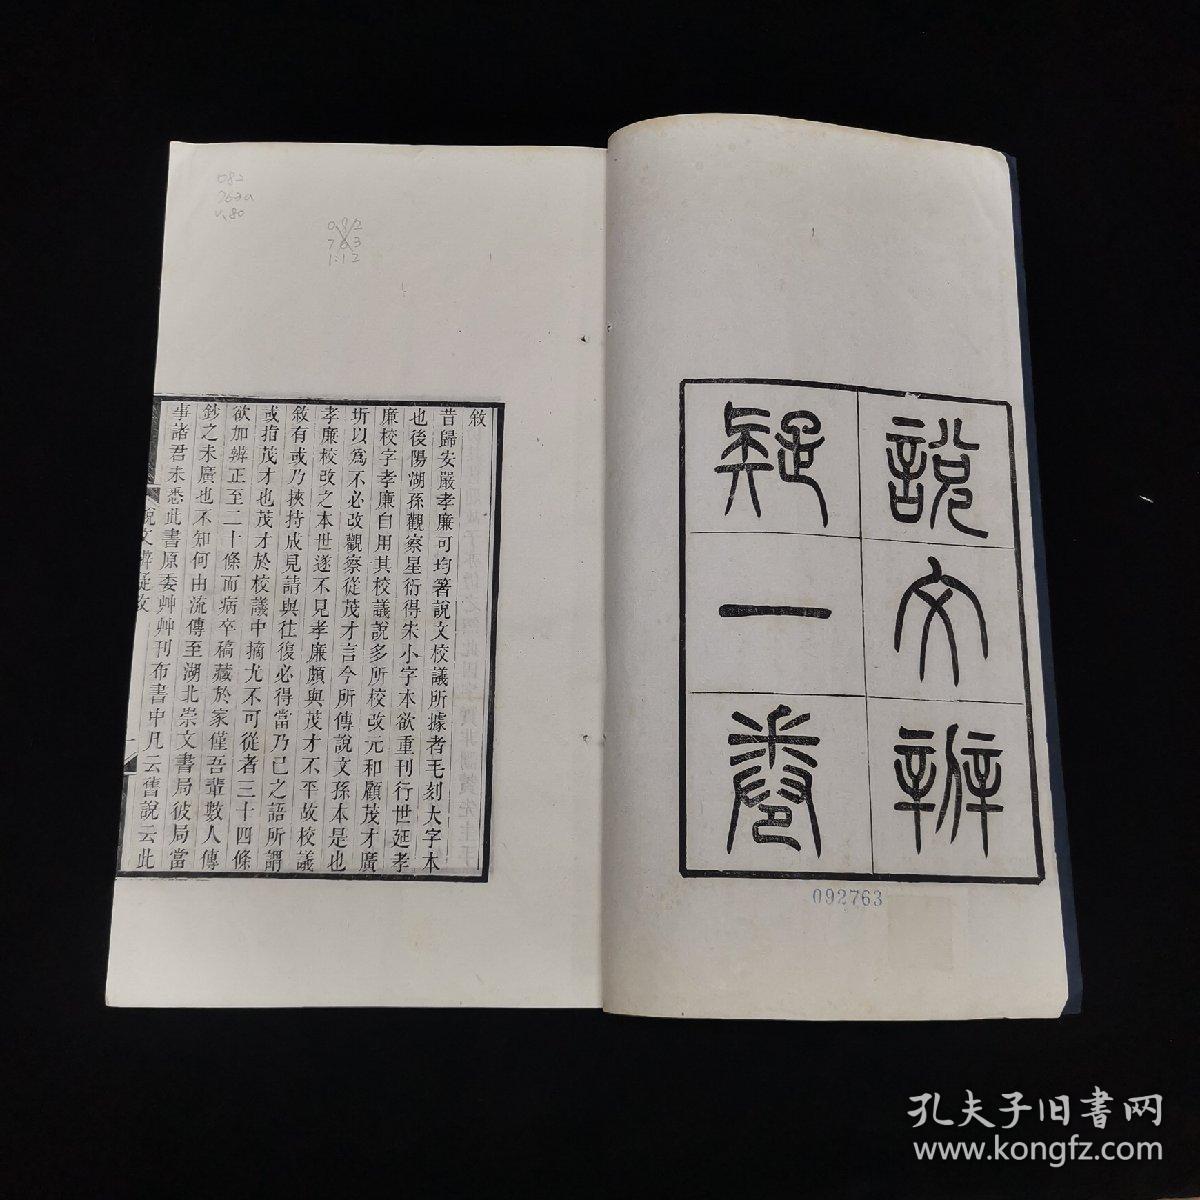 說文辨
疑一卷
092763
敘
昔歸安嚴孝廉可均箸說文校議所據者毛刻大字本
也後陽湖孫觀察星衍得朱小字本欲重刊行世延孝
廉校字孝廉自用其校議說多所校改元和顧茂才廣
圻以為不必改觀察從茂才言今所傳說文孫本是也
孝廉校改之本世遂不見孝廉頗與茂才不平故校議
敘有或乃挾持成見請與往復必得當乃已之語所謂
或指茂才也茂才於校議中摘尤不可從者三十四條
欲加辨正至二十條而病卒稿藏於家僅吾輩數人傳
鈔之未廣也不知何由流傳至湖北崇文書局彼局當
事諸君未悉此書原委艸艸刊布書中凡云舊說云此
說文辨疑敘
一
082
763a
v.80
082
763
1:12
孔夫子旧书网
www.kongfz.com